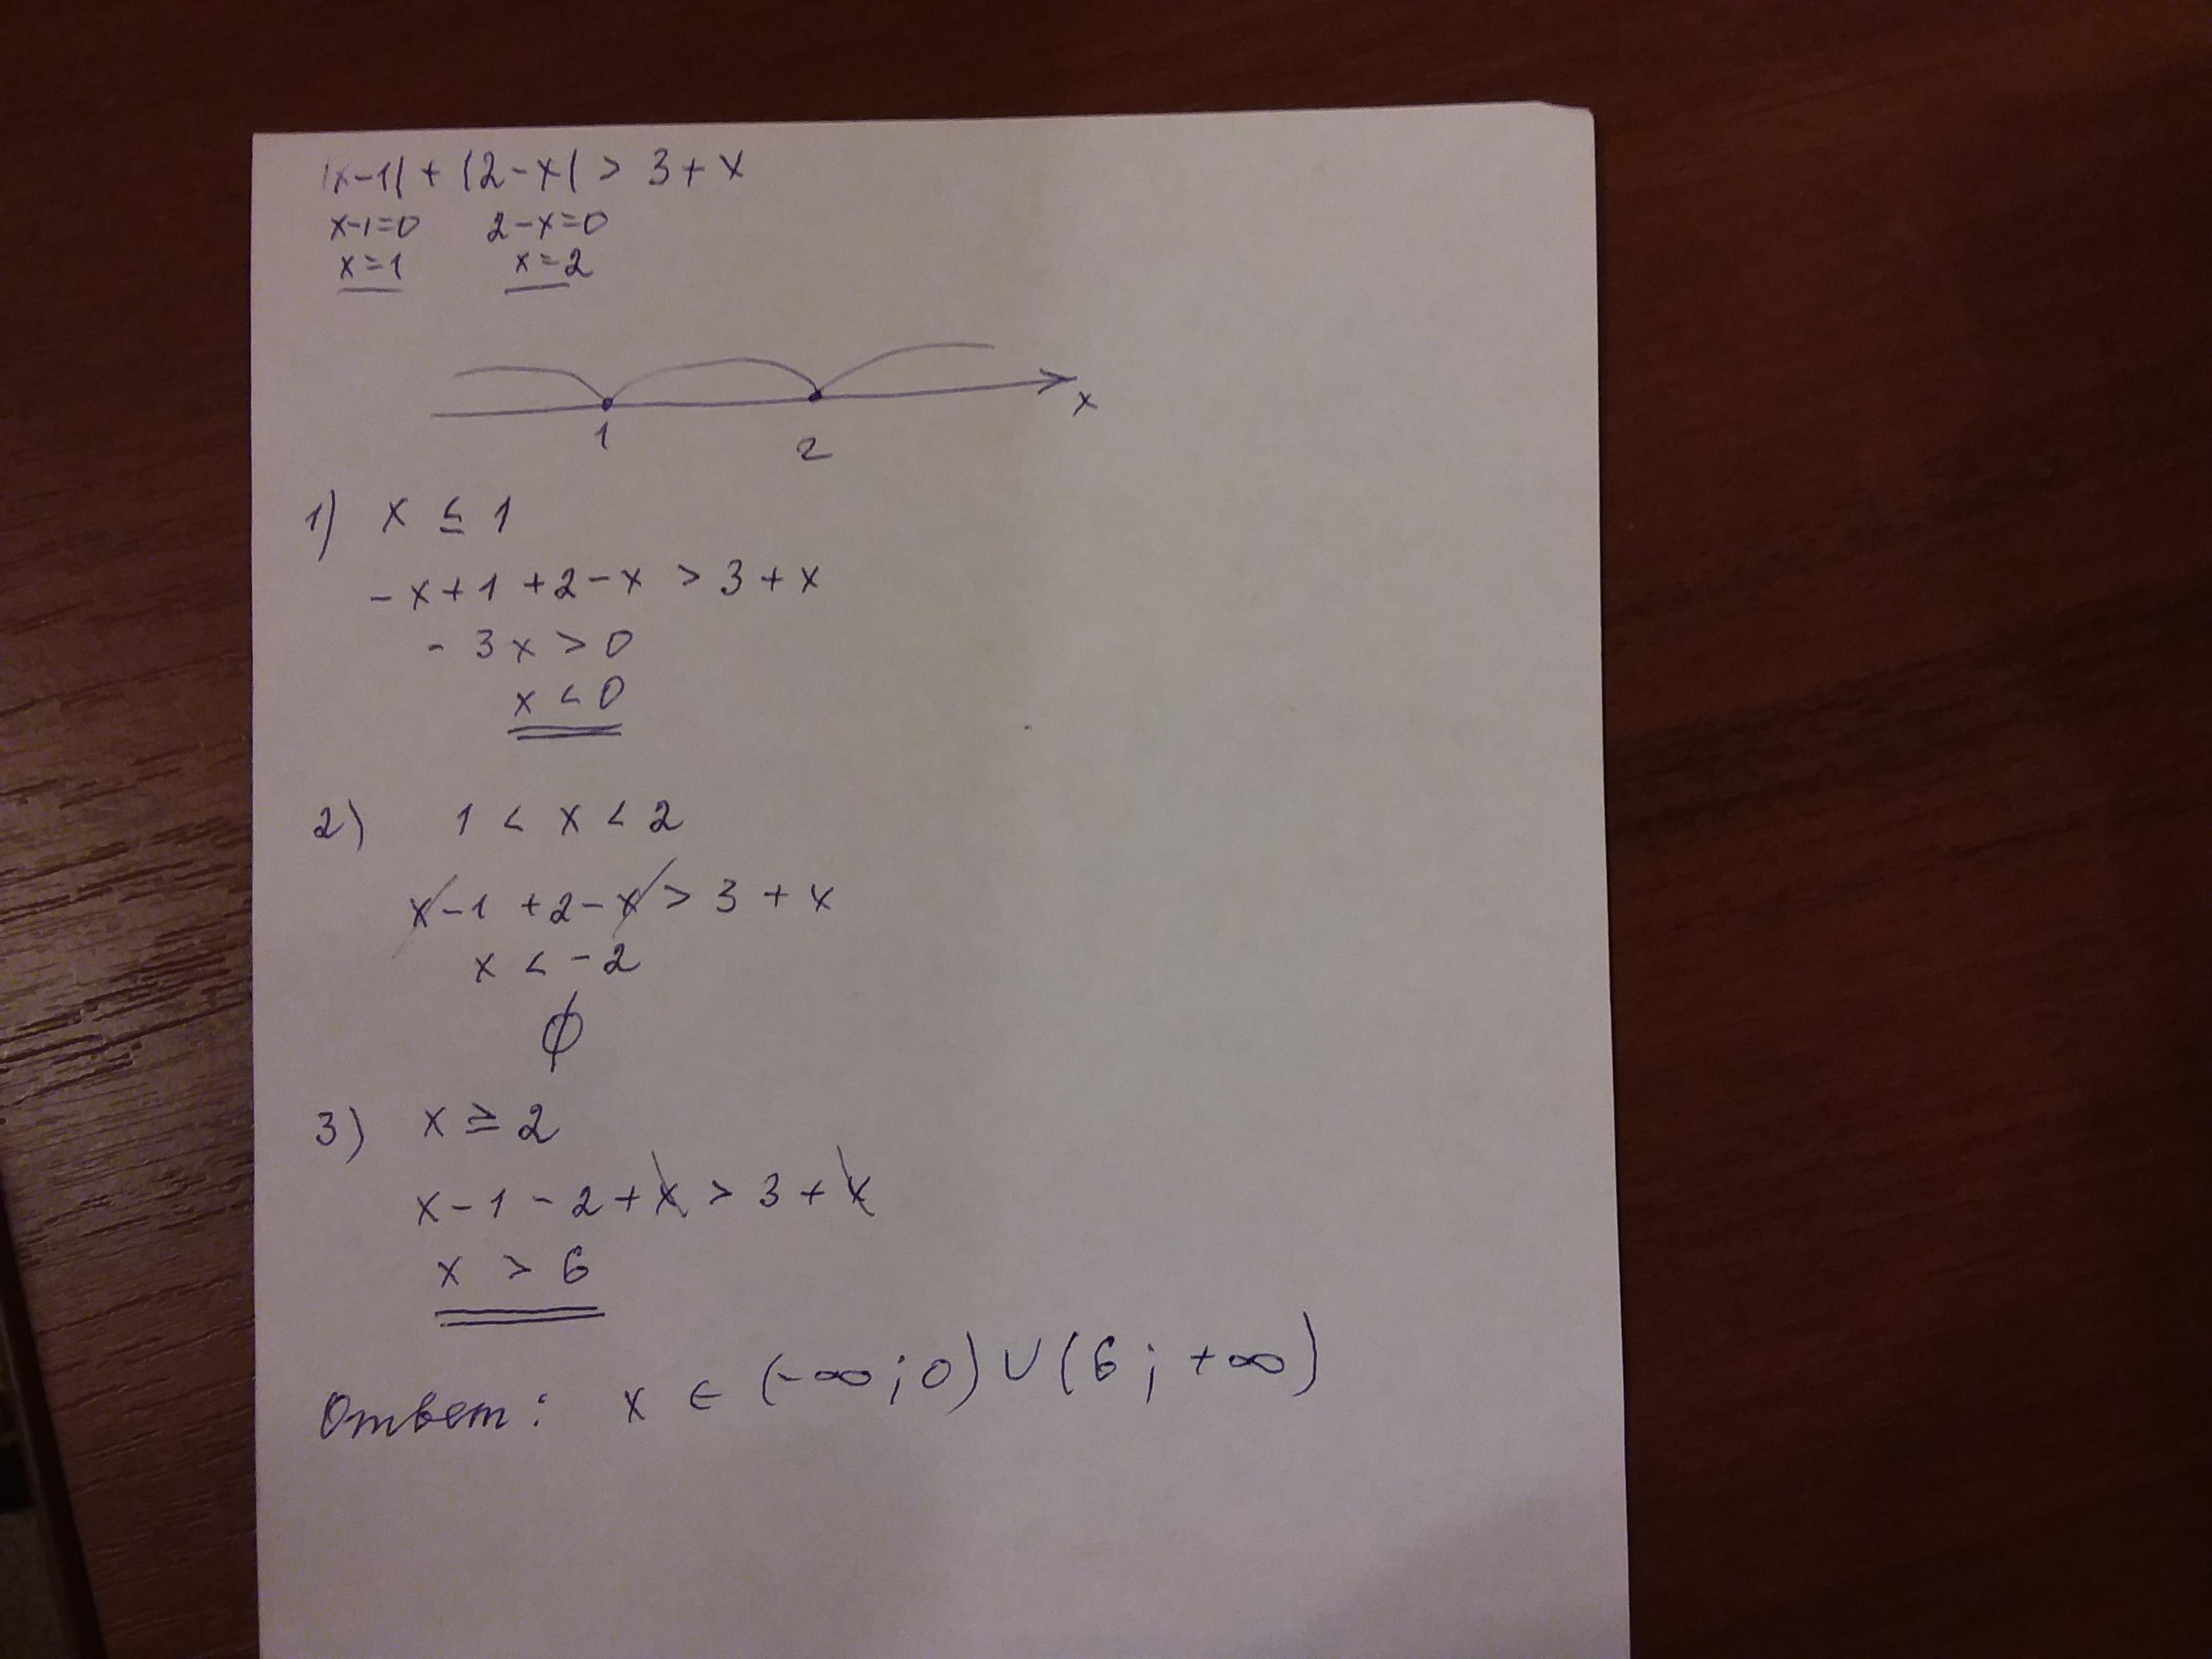 |x-1| + |2-x| > 3 + x
x-1=0 2-x=0
x=1 x=2
x
1 2
1) x ≤ 1
-x+1+2-x > 3+x
-3x > 0
x < 0
2) 1 < x < 2
x-1+2-x > 3+x
x < -2
∅
3) x ≥ 2
x-1-2+x > 3+x
x > 6
Ответ: x ∈ (-∞; 0) ∪ (6; +∞)